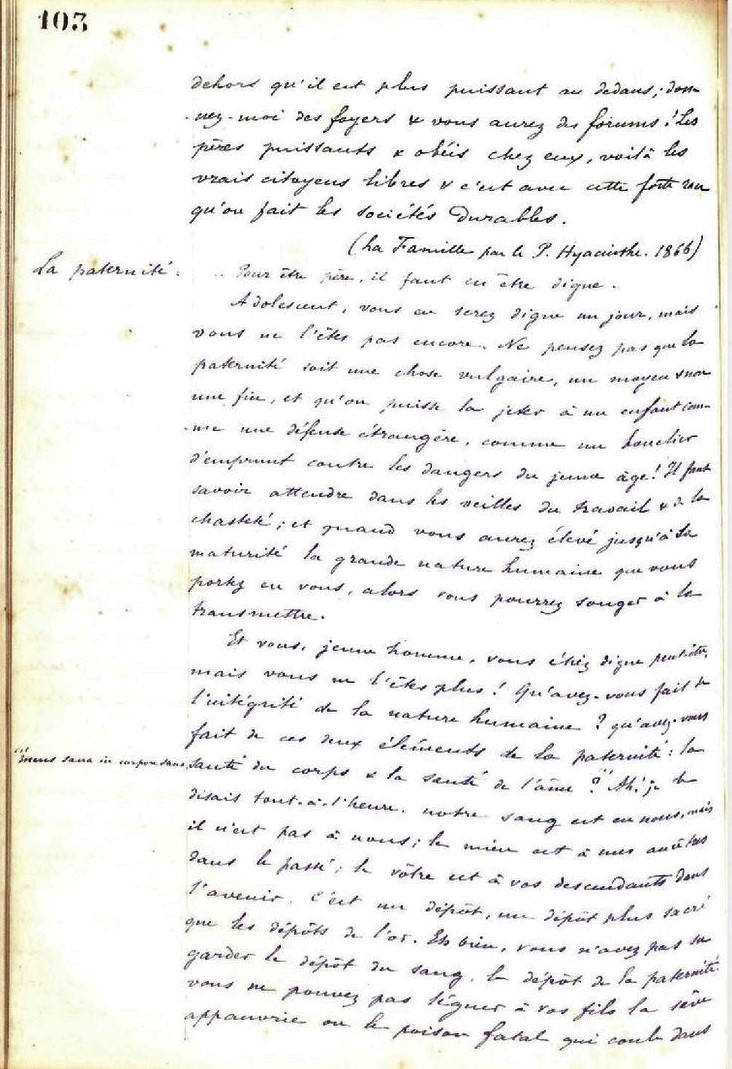 103
dehors qu'il est plus puissant au dedans; don-
-nez-moi des foyers & vous aurez des forums! Les
pères puissants & obéis chez eux, voilà les
vrais citoyens libres & c'est avec cette forte race
qu'on fait les sociétés durables.
(La Famille par le P. Hyacinthe. 1866)
La paternité.
.. Pour être père, il faut en être digne.
Adolescent, vous en serez digne un jour, mais
vous ne l'êtes pas encore. Ne pensez pas que la
paternité soit une chose vulgaire, un moyen & non
une fin, et qu'on puisse la jeter à un enfant com-
-me une défense étrangère, comme un bouclier
d'emprunt contre les dangers du jeune âge! Il faut
savoir attendre dans les veilles du travail & de la
chasteté; et quand vous aurez élevé jusqu'à sa
maturité la grande nature humaine que vous
portez en vous, alors vous pourrez songer à la
transmettre.
Et vous, jeune homme, vous étiez digne peut-être,
mais vous ne l'êtes plus! Qu'avez-vous fait de
l'intégrité de la nature humaine? qu'avez-vous
fait de ces deux éléments de la paternité: la
"mens sana in corpore sano
santé du corps & la santé de l'âme"? Ah! je le
disais tout-à-l'heure. notre sang est en nous, mais
il n'est pas à nous; le mien est à mes ancêtres
dans le passé; le vôtre est à vos descendants dans
l'avenir. C'est un dépôt, un dépôt plus sacré
que les dépôts de l'or. Eh bien, vous n'avez pas su
garder le dépôt du sang, le dépôt de la paternité.
vous ne pouvez pas léguer à vos fils la sève
appauvrie ou le poison fatal qui coule dans